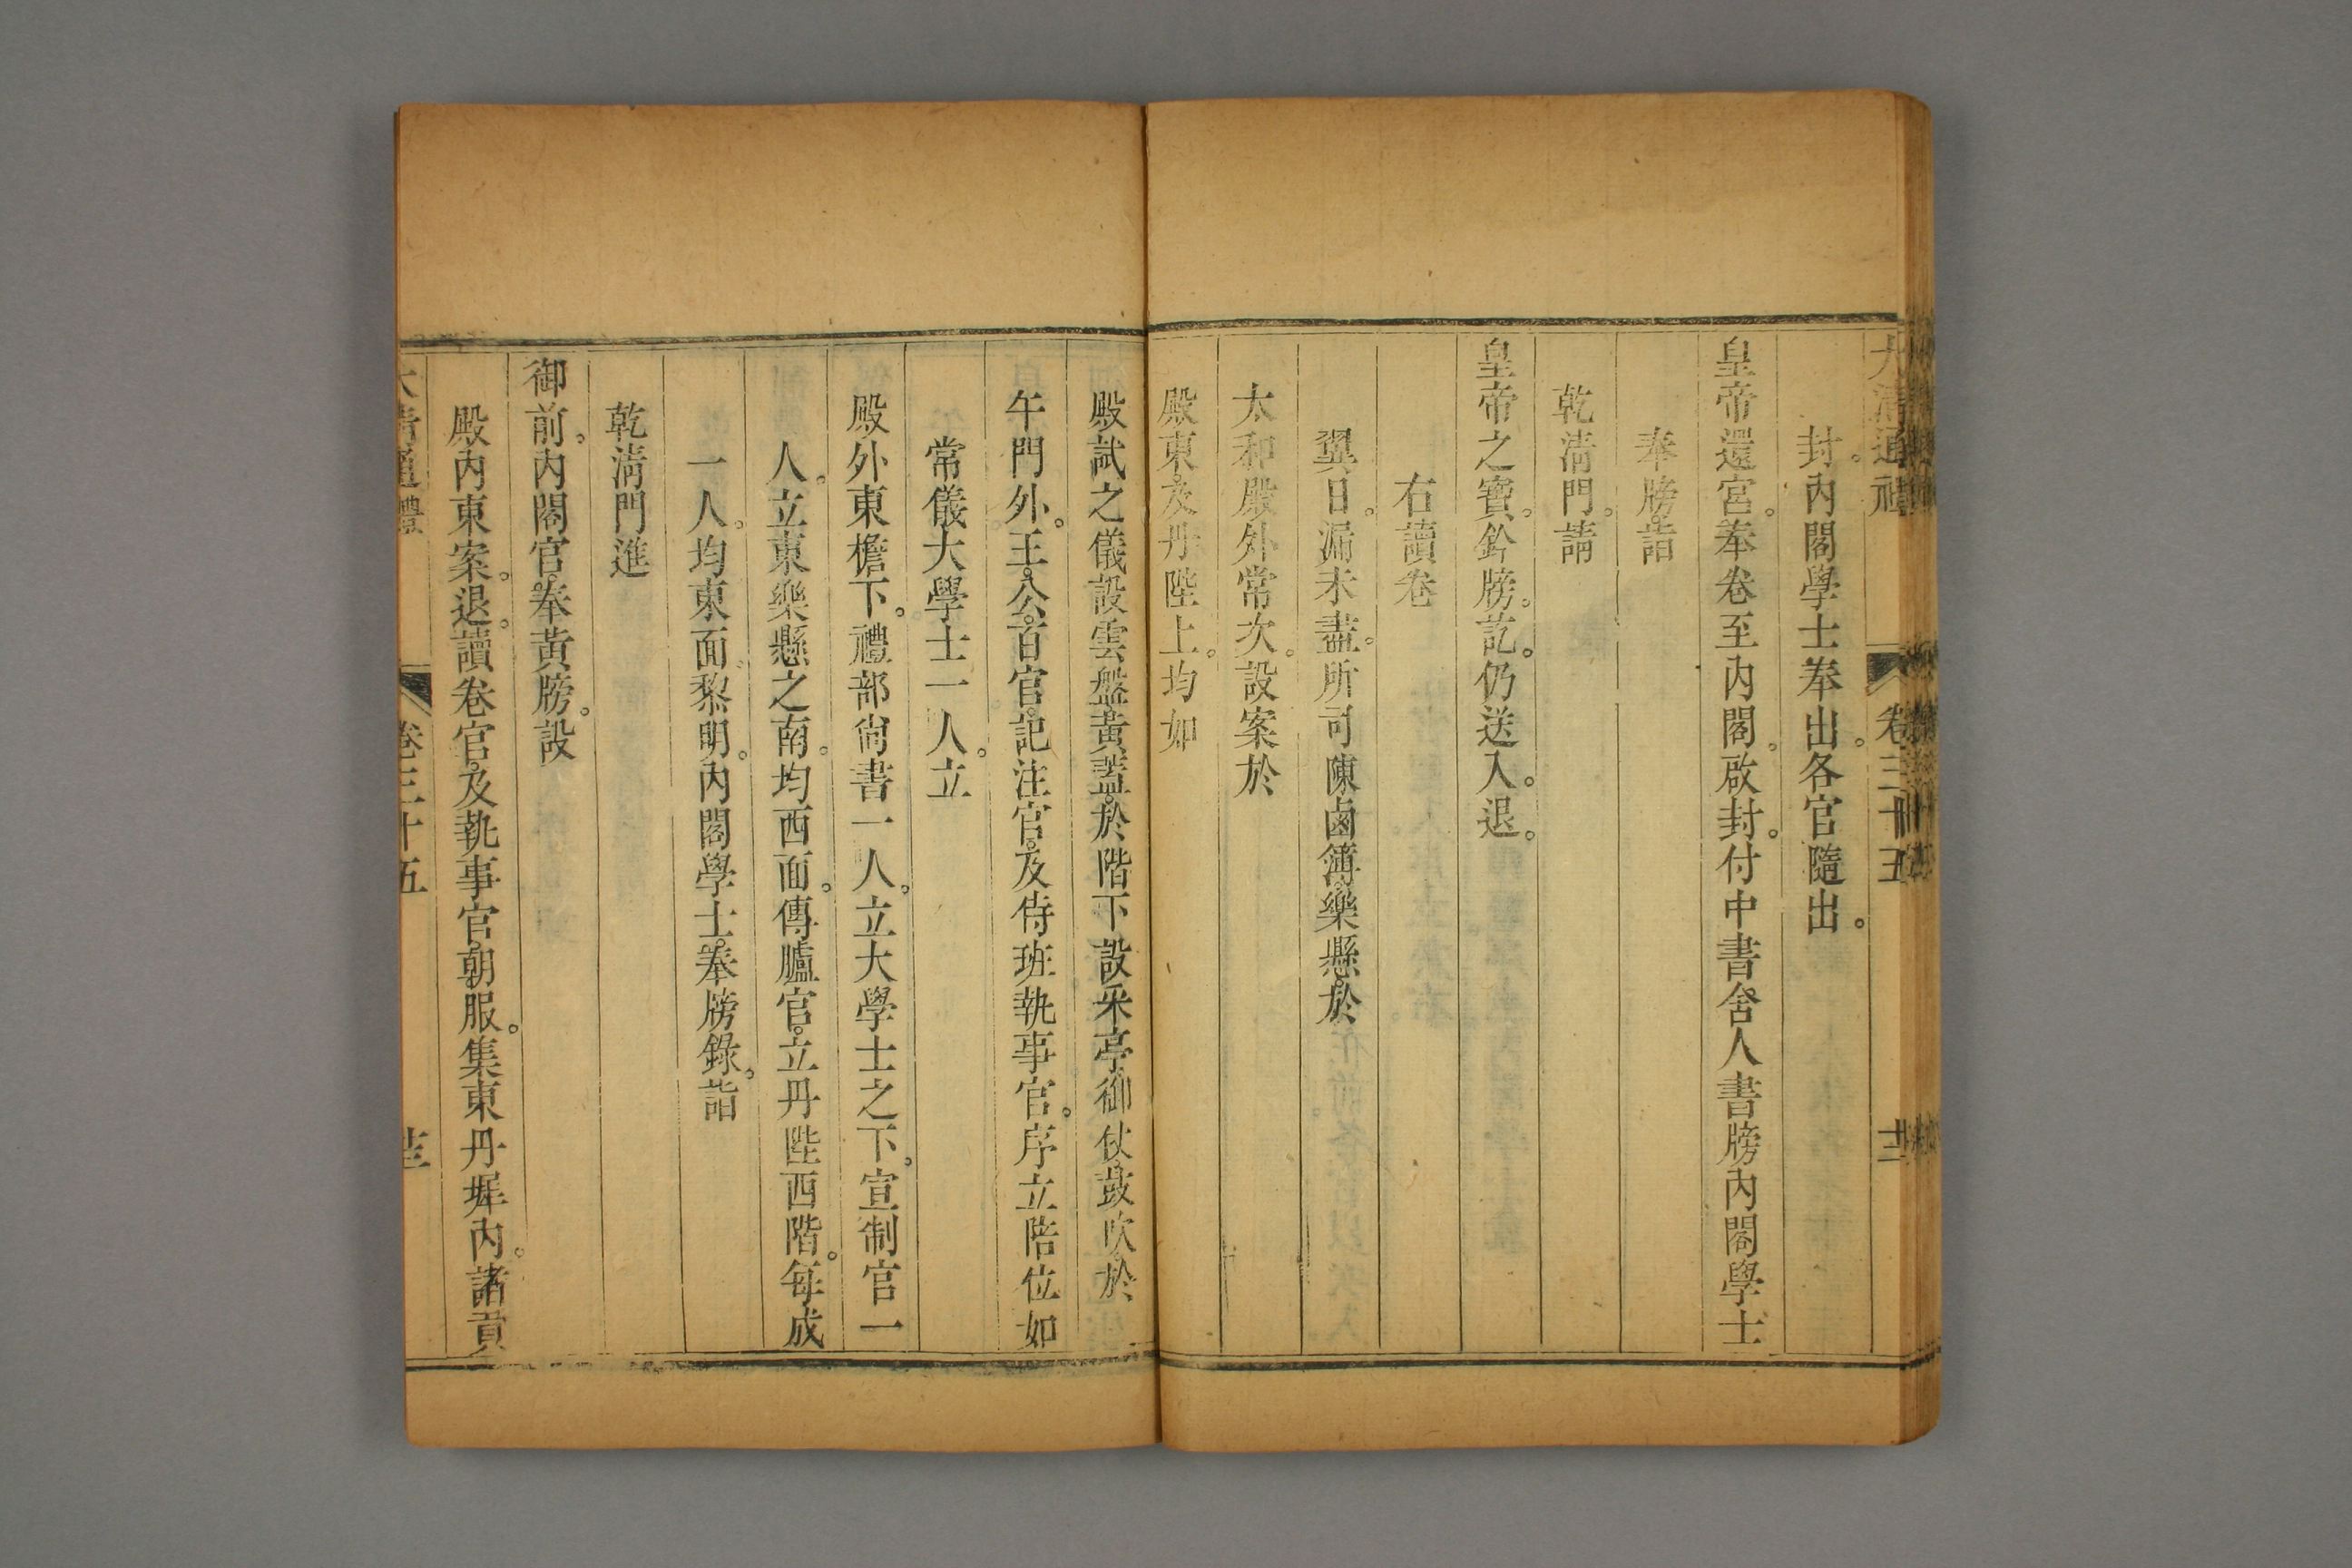 大清通禮 卷三十五 十二
封。內閣學士奉出。各官隨出。
皇帝還宮。奉卷至內閣。啟封。付中書舍人書牓。內閣學士
奉牓。詣
乾淸門。請
皇帝之寶。鈐牓。訖。仍送入。退。
右讀卷
翼日。漏未盡。所司陳鹵簿。樂懸。於
太和殿外常次。設案於
殿東。及丹陛上。均如
殿試之儀。設雲盤。黃蓋。於階下。設采亭。御仗。鼓吹。於
午門外。王。公。百官。記注官。及侍班執事官。序立陪位如
常儀。大學士一人。立
殿外東檐下。禮部尙書一人。立大學士之下。宣制官一
人。立東樂懸之南。均西面。傳臚官。立丹陛西階。每成
一人。均東面。黎明。內閣學士。奉牓錄。詣
乾淸門進
御前。內閣官。奉黃牓。設
殿內東案。退。讀卷官。及執事官。朝服。集東丹墀內。諸貢
大淸通禮 卷三十五